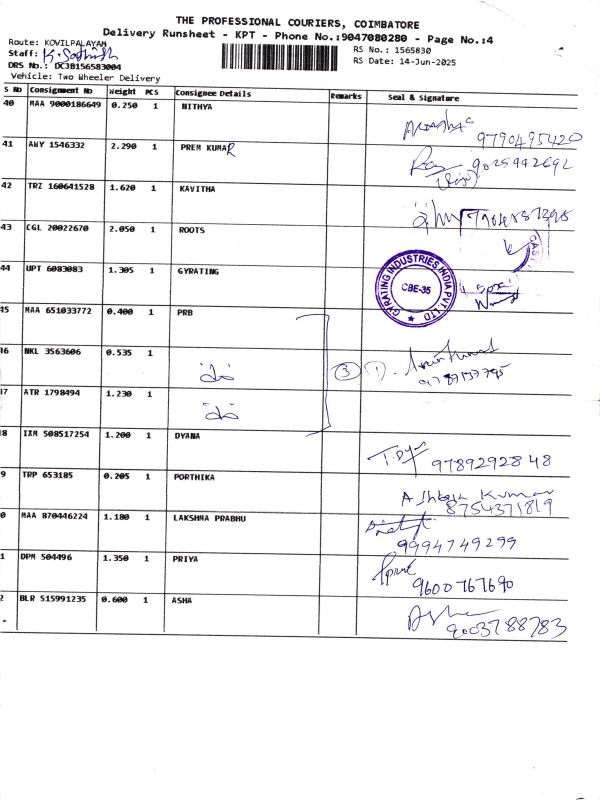 THE PROFESSIONAL COURIERS, COIMBATORE
Delivery Runsheet - KPT - Phone No.:9047080280 - Page No.:4
Route: KOVILPALAYAM
RS No.: 1565830
Staff: K. Sathish
RS Date: 14-Jun-2025
DRS No.: DCJB156583004
Vehicle: Two Wheeler Delivery
S No Consignment No Weight PCS Consignee Details Remarks Seal & Signature
40 MAA 9000186649 0.250 1 NITHYA
9790495420
41 AWY 1546332 2.290 1 PREM KUMAR
9025442692
42 TRZ 160641528 1.620 1 KAVITHA
43 CGL 20022670 2.050 1 ROOTS
44 UPT 6083083 1.305 1 GYRATING
GYRATING INDUSTRIES INDIA PVT LTD
CBE-35
45 MAA 651033772 0.400 1 PRB
46 NKL 3563606 0.535 1 3
47 ATR 1798494 1.230 1
8 IXM 508517254 1.200 1 DYANA
9789292848
9 TRP 653185 0.205 1 PORTHIKA Ashok Kumar
8754371819
0 MAA 870446224 1.180 1 LAKSHMA PRABHU
9994749299
1 DPM 504496 1.350 1 PRIYA
9600767690
2 BLR 515991235 0.600 1 ASHA Asha
9003788783